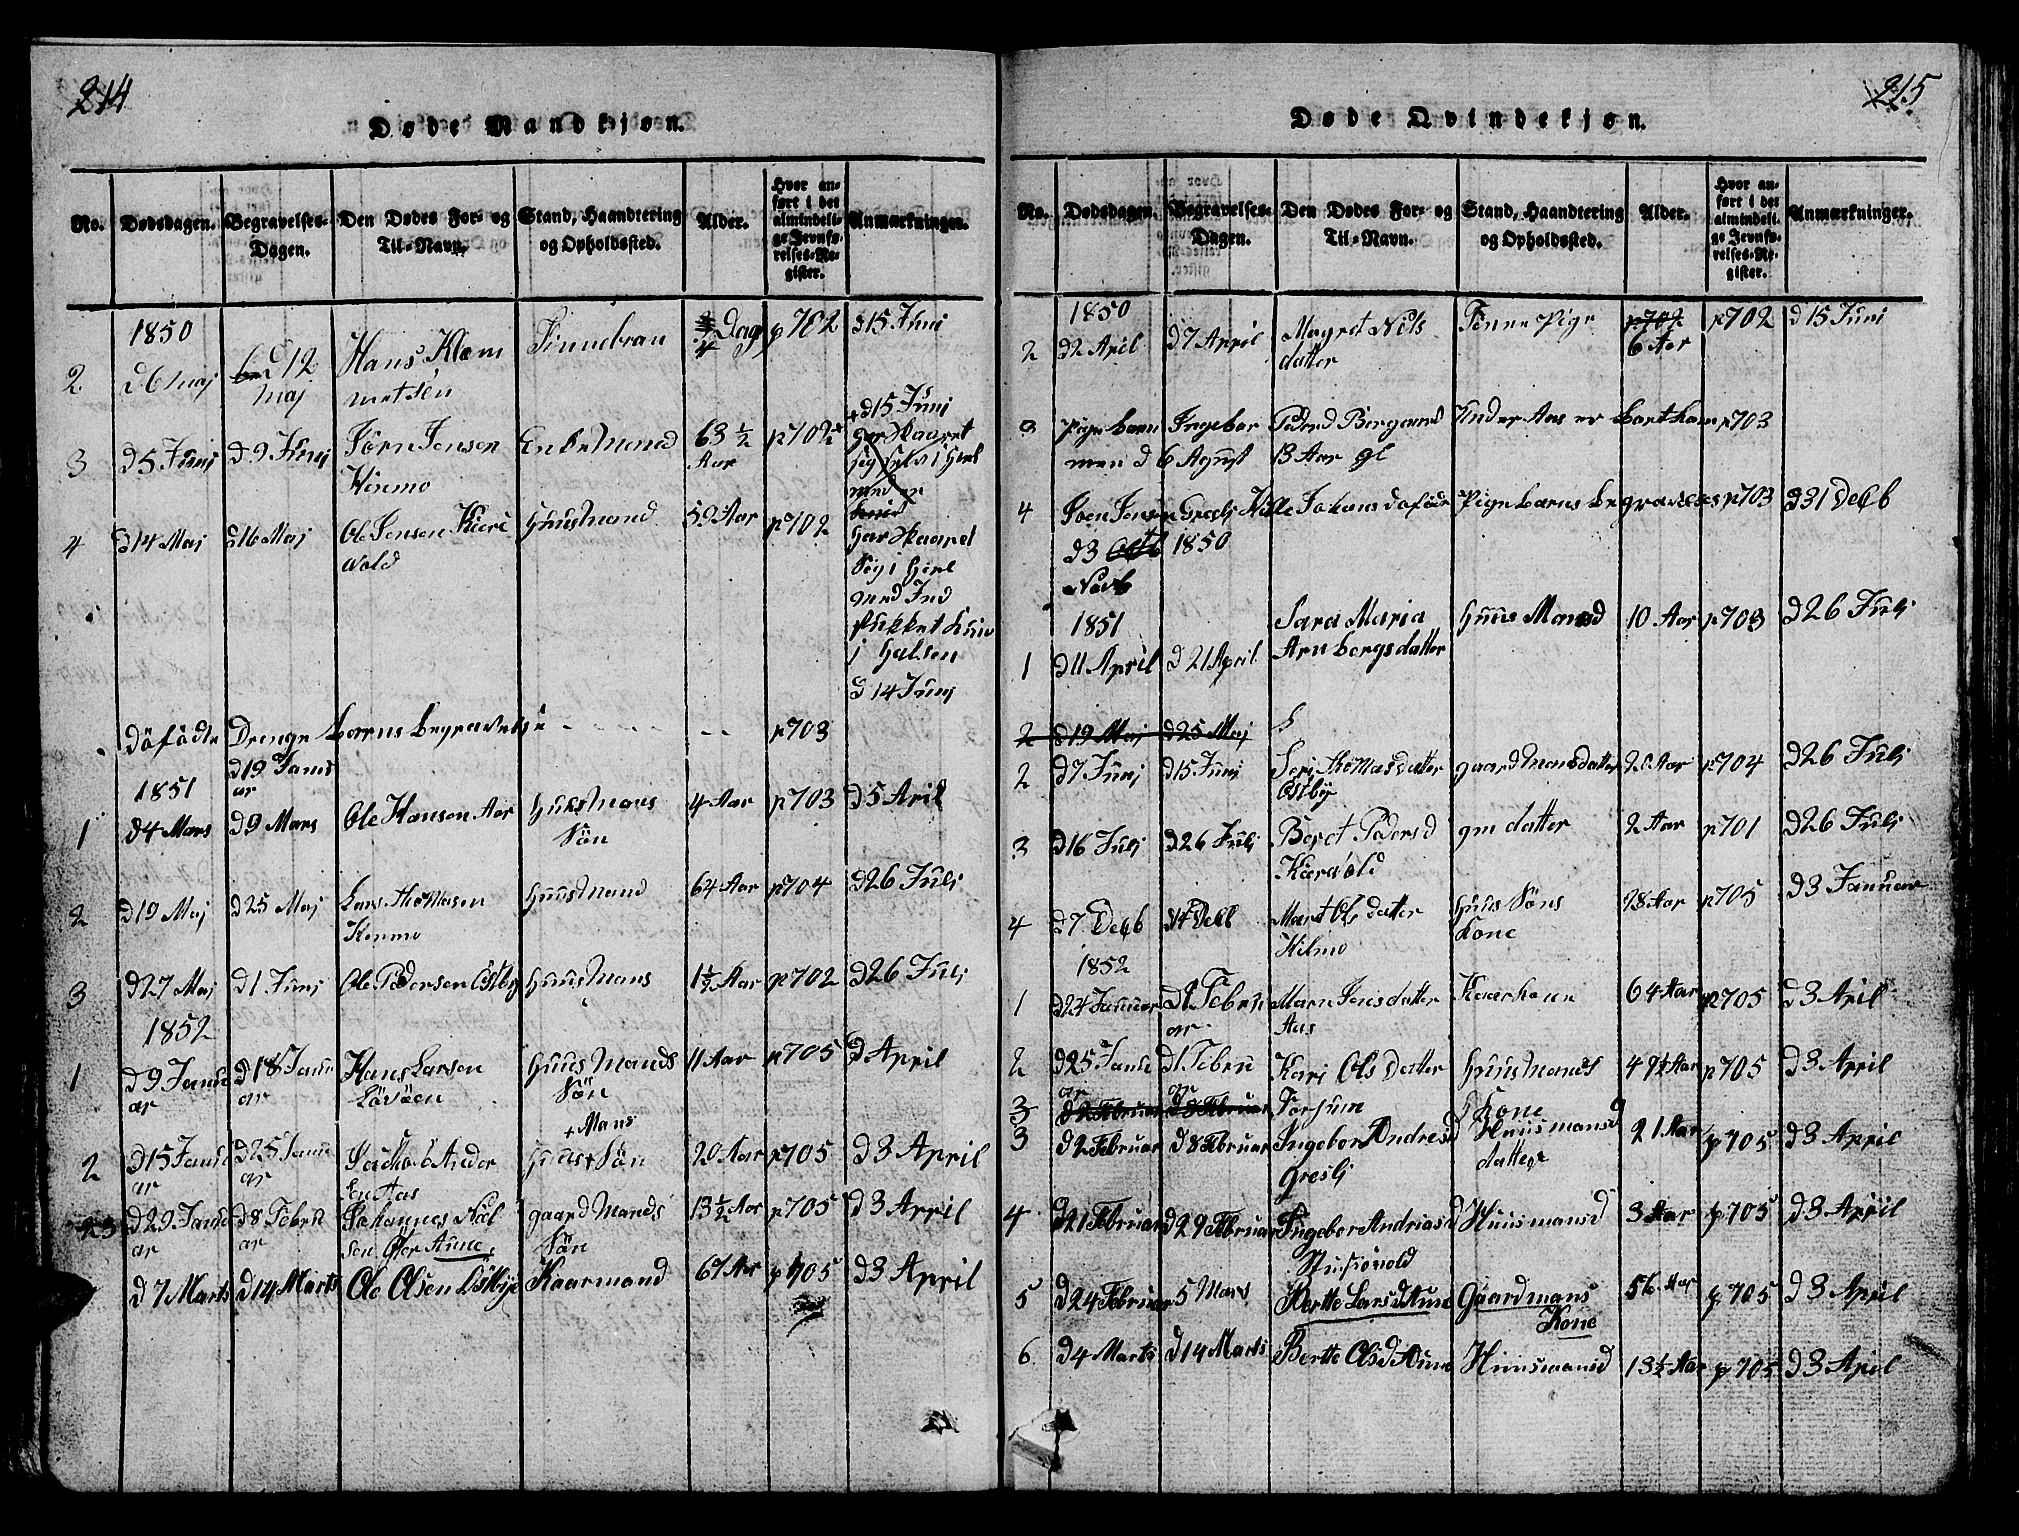 214
Døde Mandkjøn.
No. Dødsdagen. Begravelses-Dagen. Den Dødes For- og Til-Navn. Stand, Haandtering og Opholdssted. Alder. Hvor anført i det almindelige Jevnførelses-Register. Anmærkninger.
1850
2 d 6 Maj d 12 Maj Hans Klemmetsen 4 Dag p 702 d 15 Juni
3 d 5 Junj d 9 Junj Jørn Jensen Enkemand 63 ½ Aar p 702 + d 15 Juni
har skaaret sig selv i Hiel med
4 d 14 Maj d 16 Maj Ole Jensen Huusmand 59 Aar p 702 har skaaret sig i Hiel med i Halsen d 14 Junj
Döfödte Drenge Barns Begravelse p 703
d 19 Januar
1851
1 d 4 Mars d 9 Mars Ole Hansen Aar Huusmans Sön 4 Aar p 703 d 5 Aril
2 d 19 Maj d 25 Maj Lars Thomasen Huusmand 64 Aar p 704 d 26 Julj
3 d 27 Maj d 1 Junj Ole Pedersen Östby Huusmans 1½ Aar p 702 d 26 Julj
1852
1 d 9 Januar d 18 Januar Hans Larsen Lövöen Huusmands Sön 11 Aar p 705 d April
2 d 15 Januar d 25 Januar Andersen Aas Huus + Mans Sön 20 Aar p 705 d 3 April
23 d 29 Januar d 8 Februar Johannes Aune gaardMands Sön 13½ Aar p 705 d 3 April
d 7 Marts d 14 Marts Ole Olsen Östbye Kaarmand 67 Aar p 705 d 3 April
215
Døde Qvindekjøn.
No. Dødsdagen. Begravelses-Dagen. Den Dødes For- og Til-Navn. Stand, Haandtering og Opholdssted. Alder. Hvor anført i det almindelige Jevnførelses-Register. Anmærkninger.
1850
2 d 2 April d 7 April Magret Nilsdatter Pige p 702 6 Aar p 702 d 15 Juni
3 Ingebor Peders d 6 Agust 13 Aar gl p 703
4 Johans döföde Pigebarns begravelses p 703 d 31 Decb
d 3 Octb Novb 1850
1851
1 d 11 April d 21 April Sara Maria Arnbergsdatter Huus Mansd 10 Aar p 703 d 26 Julj
2 d 19 Maj d 25 Maj
2 d 7 Junj d 15 Junj Seri Thomasdatter Östby gaardMansdatter 20 Aar p 704 d 26 Julj
3 d 16 Julj d 26 Julj Beret Pedersd gm datter 2 Aar p 701 d 26 Julj
4 d 7 Decb d 14 Decb Marit Ols datter Huus Söns Kone 28 Aar p 705 d 3 Januar
1852
1 d 24 Januar d 1 Februar Maren Jensdatter Aas Kaarkone 64 Aar p 705 d 3 April
2 d 25 Januar d 1 Februar Kari Ols Datter Huusmands Kone 49½ Aar p 705 d 3 April
3 d 2 Februar d 8 Februar
3 d 2 Februar d 8 Februar Ingebor Andresd Greslj Huusmansd datter 21 Aar p 705 d 3 April
4 d 21 Februar d 29 Februar Ingebor Andriasd Huusmansd 3 Aar p 705 d 3 April
5 d 24 Februar 5 Mars Berte Larsd Aune Gaardmans Kone 56 Aar p 705 d 3 April
6 d 4 Marts d 14 Marts Berte Olsd Aune Huusmansd 13½ Aar p 705 d 3 April